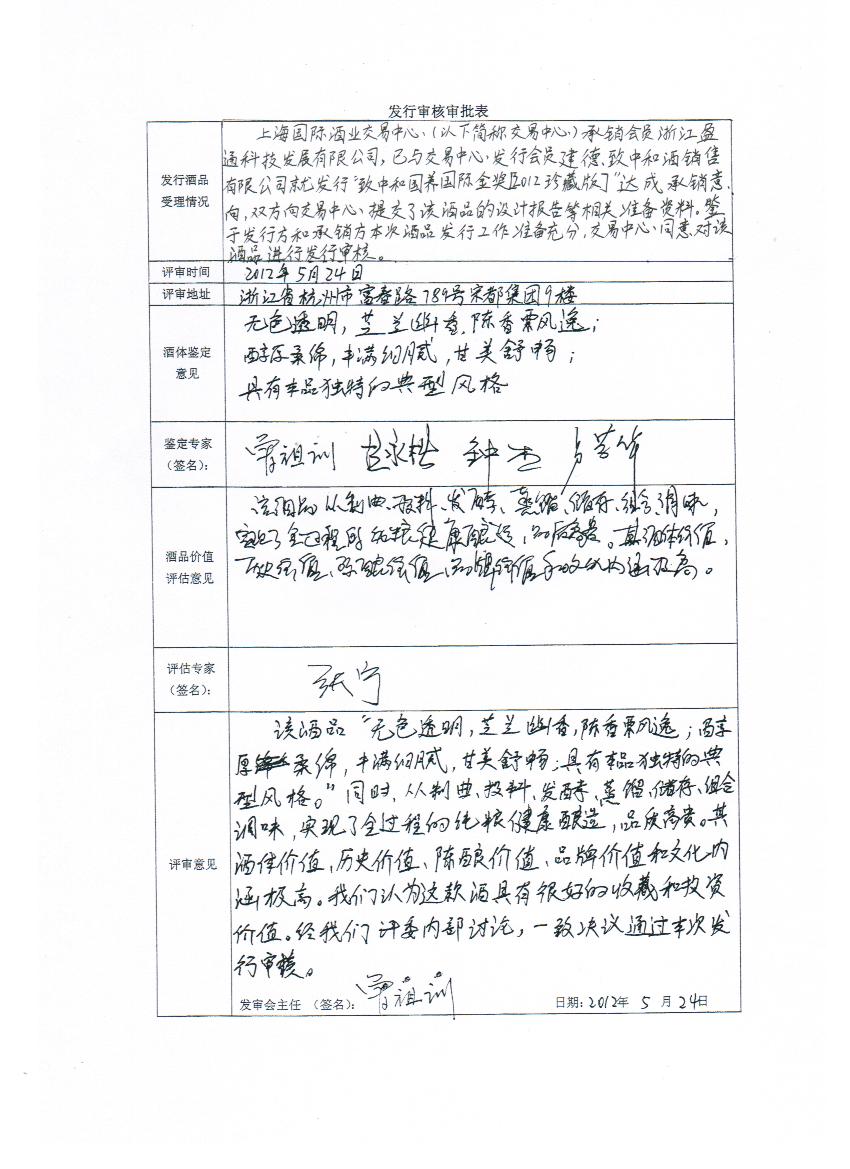 发行审核审批表
发行酒品
受理情况
上海国际酒业交易中心（以下简称交易中心）承销会员浙江盈
通科技发展有限公司，已与交易中心发行会员建德致中和酒销售
有限公司就发行“致中和国养国际金奖[2012珍藏版]”达成承销意
向，双方向交易中心提交了该酒品的设计报告等相关准备资料。鉴
于发行方和承销方本次酒品发行工作准备充分，交易中心同意对该
酒品进行发行审核。
评审时间
2012年5月24日
评审地址
浙江省杭州市富春路789号宋都集团9楼
酒体鉴定
意见
无色透明，芝兰幽香，陈香飘逸；
醇厚柔绵，丰满细腻，甘美舒畅；
具有本品独特的典型风格
鉴定专家
（签名）：
曾祖训 钟杰
酒品价值
评估意见
该酒品从制曲、投料、发酵、蒸馏、储存、组合调味，
实现了全过程的纯粮健康酿造，品质高贵。其酒体价值、
历史价值、陈酿价值、品牌价值和文化内涵极高。
评估专家
（签名）：
张宁
评审意见
该酒品“无色透明，芝兰幽香，陈香飘逸；醇
厚柔绵，丰满细腻，甘美舒畅；具有本品独特的典
型风格。”同时，从制曲、投料、发酵、蒸馏、储存、组合
调味，实现了全过程的纯粮健康酿造，品质高贵。其
酒体价值、历史价值、陈酿价值、品牌价值和文化内
涵极高。我们认为这款酒具有很好的收藏和投资
价值。经我们评委内部讨论，一致决议通过本次发
行审核。
发审会主任 （签名）：曾祖训 日期：2012年 5 月 24日